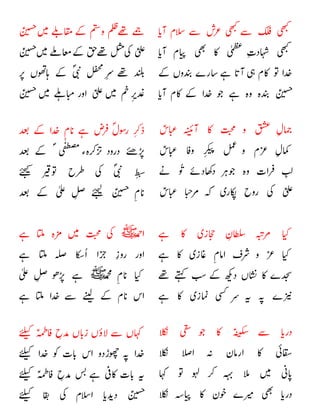 کبھی فلک سے کبھی عرش سے سلام آیا
کبھی شہادتِ عظمٰی کا بھی پیام آیا
خدا تو کام ہی آتا ہے سارے بندوں کے
حسینؑ بندہ وہ ہے جو خدا کے کام آیا
جمے تھے ظلم و ستم کے مقابلے میں حسینؑ
علیؑ کی مثل تھے حق کے معاملے میں حسینؑ
بلند تھے سرِ محفل نبیؐ کے ہاتھوں پر
غدیرِ خم میں علیؑ اور مباہلے میں حسینؑ
جمالِ عشق و محبت کا آئینہ عباسؑ
کمالِ عزم و عمل پیکرِ وفا عباسؑ
لب فرات وہ جوہر دکھادئے تُو نے
علیؑ کی روح پکاری کہ مرحبا عباسؑ
ذکرِ رسولؐ فرض ہے نامِ خدا کے بعد
پڑھئے درود تذکرہء مصطفٰیؐ کے بعد
سبطِ نبیؐ کی طرح توقیر کیجئے
نامِ حسینؑ لیجئے صلِ علٰی کے بعد
کیا مرتبہ سلطانِ حجازی کا ہے
کیا عز و شرف امامِ غازی کا ہے
سجدے کا نشاں دیکھ کے سب کہتے تھے
نیزے پہ یہ سر کسی نمازی کا ہے
احمدﷺ کی محبت میں مزہ ملتا ہے
اور روزِ جزا اُسکا صلہ ملتا ہے
کیا نامِ محمدﷺ ہے پڑھو صلِ علٰی
اس نام کے لینے سے خدا ملتا ہے
دریا سے سکینہؑ کا جو سقی نکلا
سقائی کا ارمان نہ اصلا نکلا
پانی میں ملا بہہ کر لہو تو کہا
دریا بھی میرے خون کا پیاسہ نکلا
کہاں سے لاؤں زباں مدحِ فاطمہؑ کیلئے
خدا پہ چھوڑدو اس بات کو خدا کیلئے
یہ بات کافی ہے بس مدحِ فاطمہؑ کیلئے
حسینؑ دیدیا اسلام کی بقا کیلئے